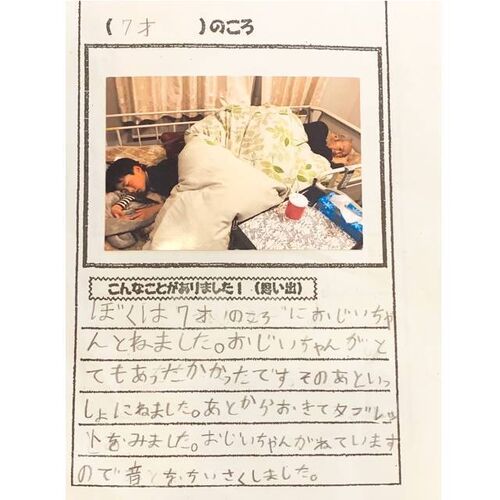 (7才 )のころ
こんなことがありました！(思い出)
ぼくは7才のころにおじいちゃ
んとねました。おじいちゃんがと
てもあったかかったです そのあといっ
しょにねました。あとからおきてタブレッ
トをみました。おじいちゃんがねています
ので音をちいさくしました。